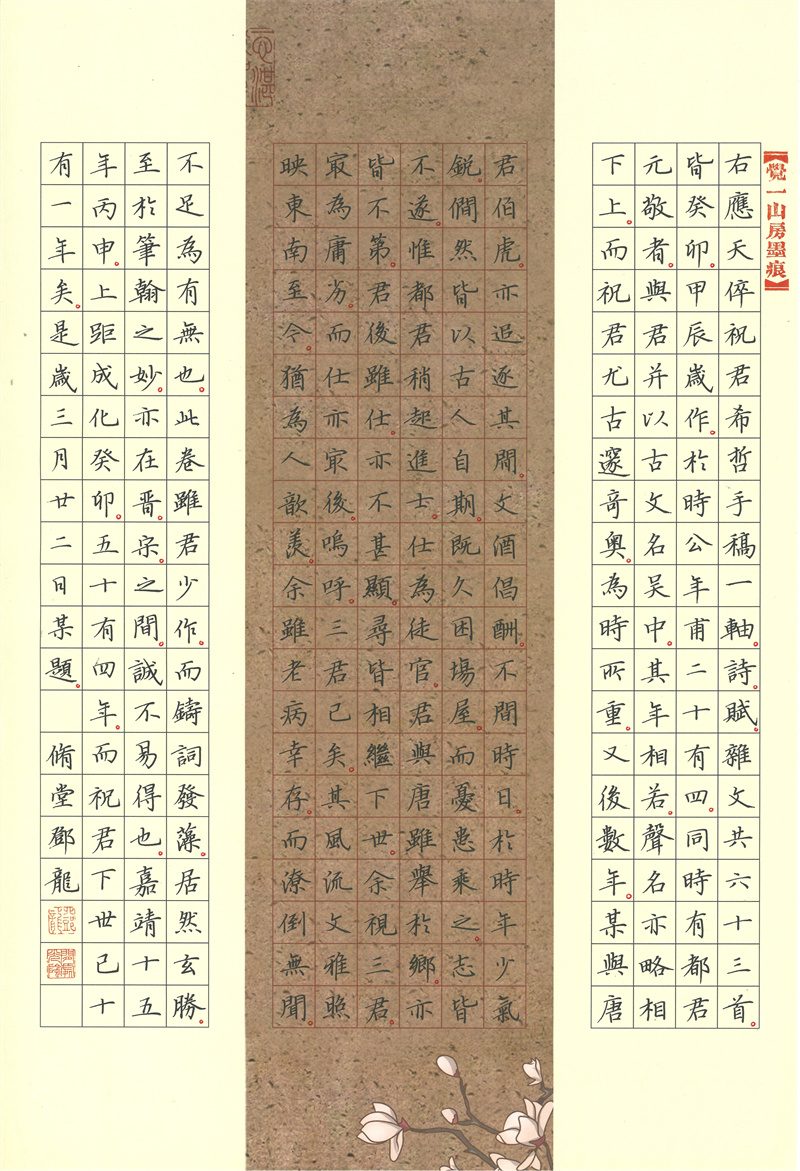 【覺一山房墨痕】
右應天倅祝君希哲手稿一軸。詩賦。雜文共六十三首。
皆癸卯。甲辰歲作。於時公年甫二十有四。同時有都君
元敬者。與君并以古文名吴中。其年相若。聲名亦略相
下上。而祝君尤古邃奇奧。為時所重。又後數年。某與唐
君伯虎。亦追逐其間。文酒倡酬。不間時日。於時年少氣
鋭。僴然皆以古人自期。既久困場屋。而憂患乘之。志皆
不遂。惟都君稍起進士。仕為徒官。君與唐雖舉於鄉。亦
皆不第。君後雖仕。亦不甚顯。尋皆相繼下世。余視三君。
冣為庸劣。而仕亦冣後。嗚呼。三君已矣。其風流文雅照
映東南至今。猶為人歆羨。余雖老病幸存。而潦倒無聞。
不足為有無也。此卷雖君少作。而鑄詞發藻。居然玄勝。
至於筆翰之妙。亦在晋宋之間。誠不易得也。嘉靖十五
年丙申。上距成化癸卯。五十有四年。而祝君下世已十
有一年矣。是歲三月廿二日某題。 脩堂鄧龍